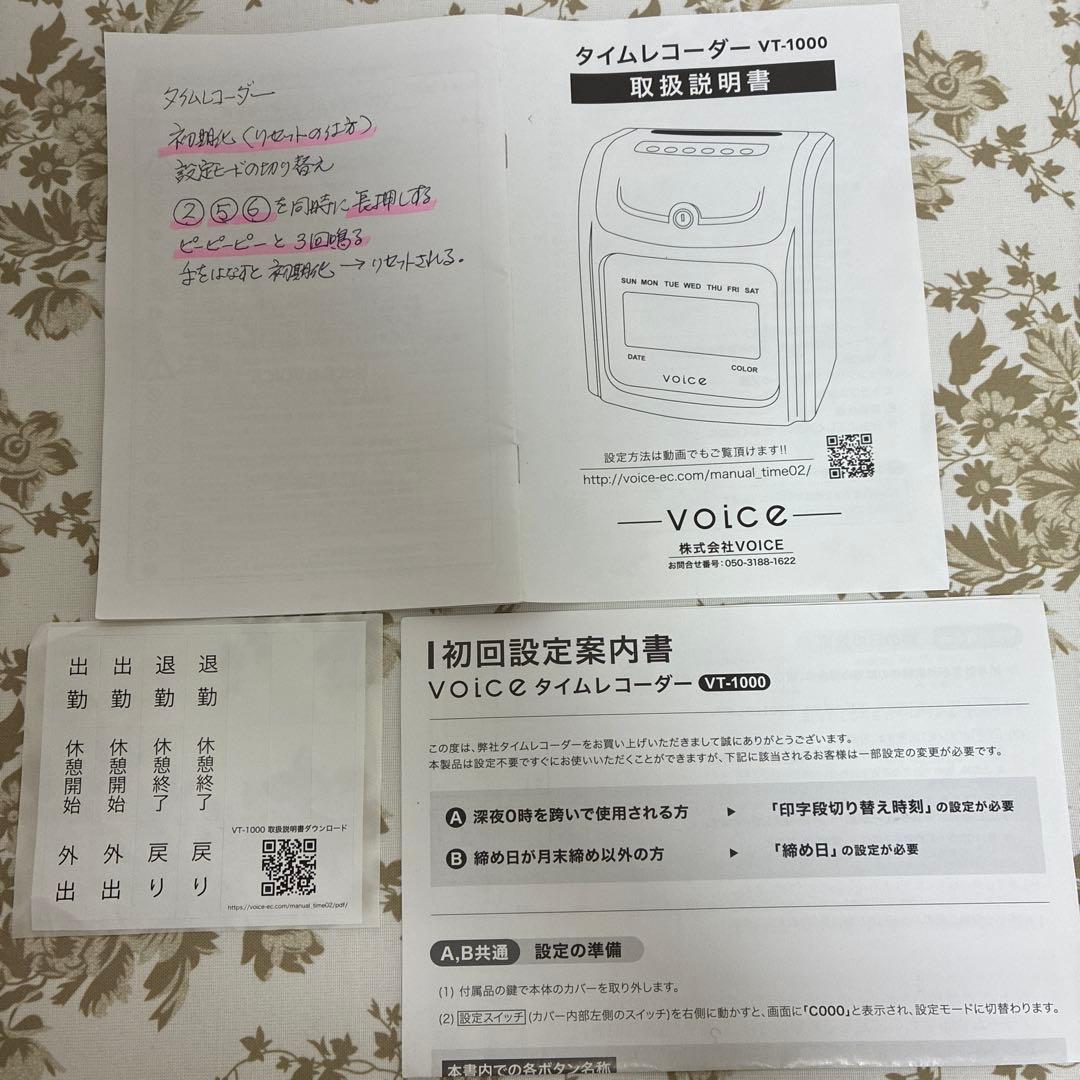 タイムレコーダー
初期化(リセットの仕方)
設定モードの切り替え
②⑤⑥を同時に長押しする
ピーピーピーと3回鳴る
手をはなすと初期化→リセットされる。
タイムレコーダー VT-1000
取扱説明書
SUN MON TUE WED THU FRI SAT
DATE
COLOR
voice
設定方法は動画でもご覧頂けます!!
http://voice-ec.com/manual_time02/
voice
株式会社VOICE
お問合せ番号:050-3188-1622
出勤 出勤 退勤 退勤
休憩開始 休憩開始 休憩終了 休憩終了
外出 外出 戻り 戻り
VT-1000 取扱説明書ダウンロード
https://voice-ec.com/manual_time02/pdf/
初回設定案内書
voice タイムレコーダー VT-1000
この度は、弊社タイムレコーダーをお買い上げいただきまして誠にありがとうございます。
本製品は設定不要ですぐにお使いいただくことができますが、下記に該当されるお客様は一部設定の変更が必要です。
A 深夜0時を跨いで使用される方 ▶ 「印字段切り替え時刻」の設定が必要
B 締め日が月末締め以外の方 ▶ 「締め日」の設定が必要
A,B共通 設定の準備
(1) 付属品の鍵で本体のカバーを取り外します。
(2) 設定スイッチ (カバー内部左側のスイッチ)を右側に動かすと、画面に「C000」と表示され、設定モードに切替わります。
本書内での各ボタン名称